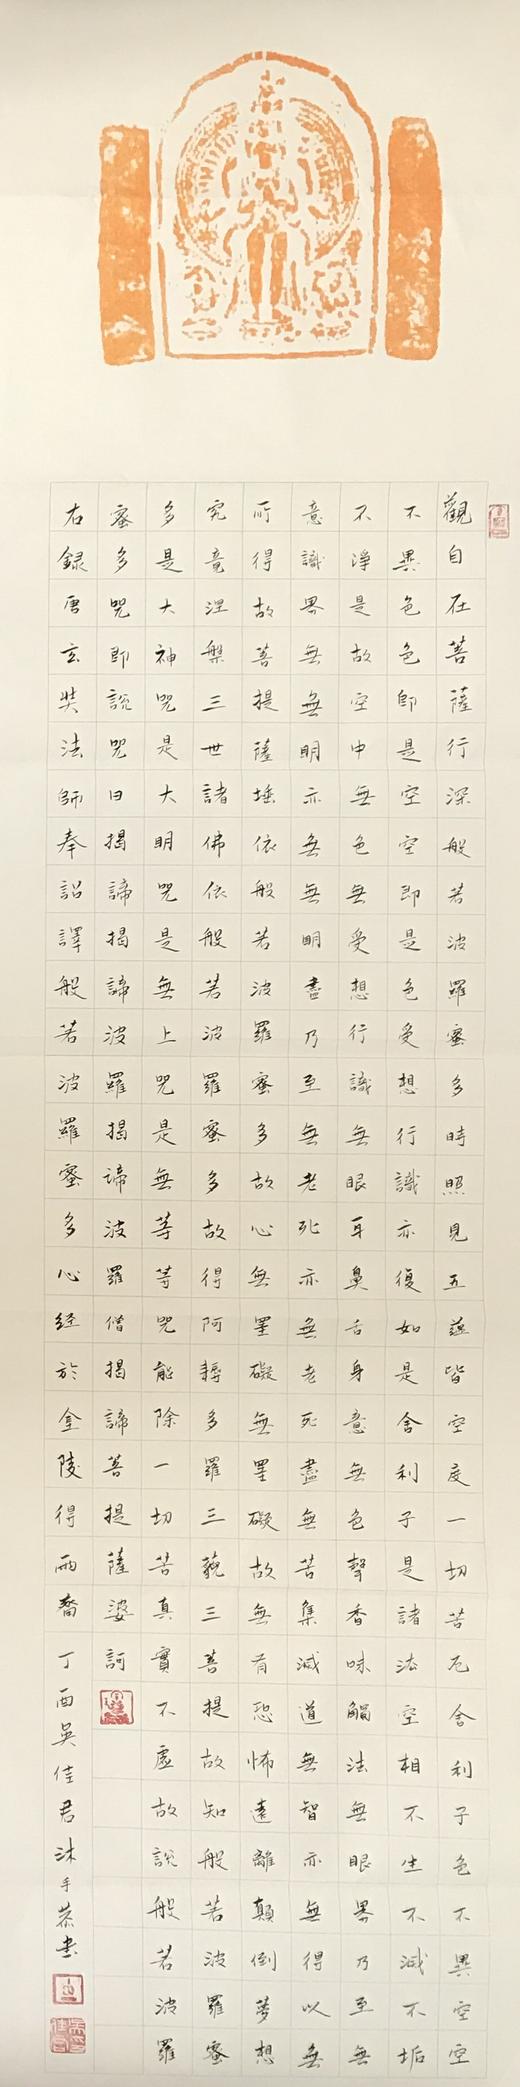 觀自在菩薩行深般若波羅蜜多時照見五蘊皆空度一切苦厄舍利子色不異空空
不異色色即是空空即是色受想行識亦復如是舍利子是諸法空相不生不滅不垢
不淨是故空中無色無受想行識無眼耳鼻舌身意無色聲香味觸法無眼界乃至無
意識界無無明亦無無明盡乃至無老死亦無老死盡無苦集滅道無智亦無得以無
所得故菩提薩埵依般若波羅蜜多故心無罣礙無罣礙故無有恐怖遠離顛倒夢想
究竟涅槃三世諸佛依般若波羅蜜多故得阿耨多羅三藐三菩提故知般若波羅蜜
多是大神咒是大明咒是無上咒是無等等咒能除一切苦真實不虛故說般若波羅
蜜多咒即說咒曰揭諦揭諦波羅揭諦波羅僧揭諦菩提薩婆訶
右録唐玄奘法師奉詔譯般若波羅蜜多心經於金陵得雨齋丁酉吳佳君沐手恭書